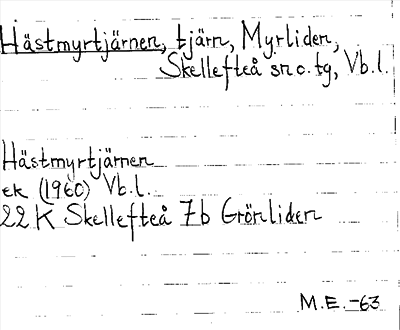 Hästmyrtjärnen, tjärn, Myrliden,
Skellefteå sn o. tg, Vb.l.
Hästmyrtjärnen
ek (1960) Vb.l.
22 K Skellefteå 7b Grönliden
M.E.-63